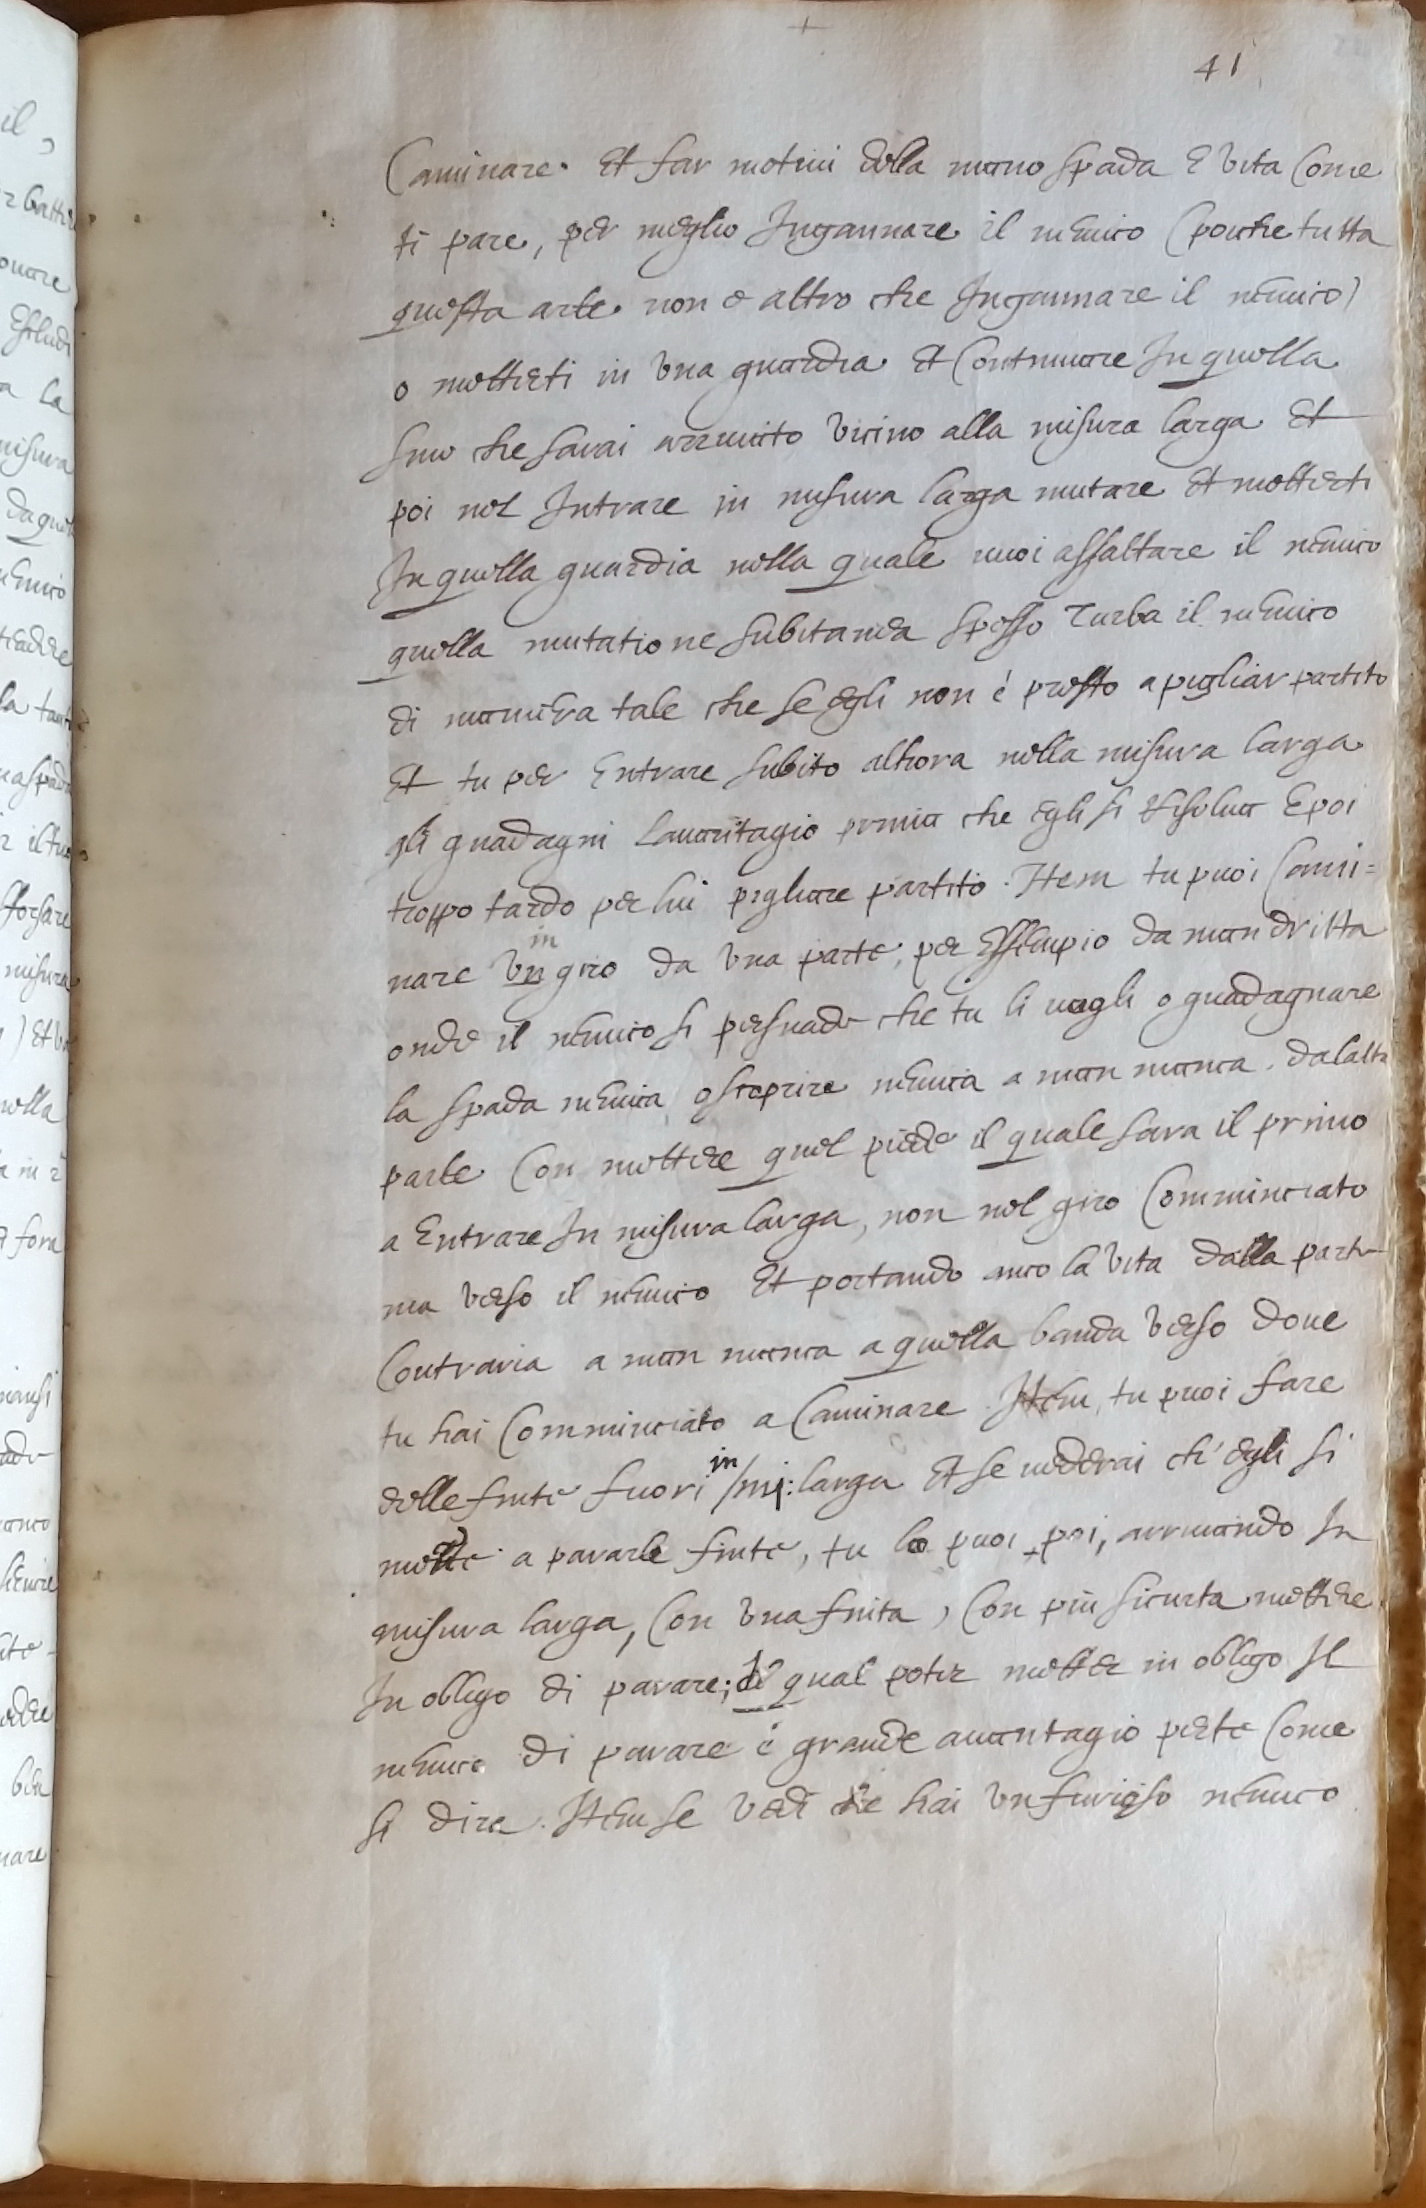 41
Caminare. Et far motiui della mano spada E vita Come
ti pare, per meglio Ingannare il nemico (poiche tutta
questa arte non e altro che Ingannare il nemico)
o metterti in vna guardia Et Continuare In quella
sino che sarai arriuato vicino alla misura larga Et
poi nel Intrare in misura larga mutare Et metterti
In quella guardia nella quale uuoi assaltare il nemico
quella mutatione subitanea spesso Turba il nemico
di maniera tale che se egli non é presto a pigliar partito
Et tu per Entrare subito alhora nella misura larga
gli guadagni lauantagio prima che egli si risolua E poi
troppo tardo per lui pigliare partito. Item tu puoi Cami=
nare in vn giro da vna parte, per Essempio da man dritta
onde il nemico si persuade che tu li uogli o guadagnare
la spada nemica o scoprire nemica a man manca. dalaltra
parte Con mettere quel piede il quale sara il primo
a Entrare In misura larga, non nel giro Comminciato
ma verso il nemico Et portando anco la vita dalla parte
Contraria a man manca a quella banda verso doue
tu hai Comminciato a Caminare. Item, tu puoi fare
delle finte fuori in mi: larga Et se uederai ch'egli si
mette a parar le finte, tu lo puoi poi, arriuando In
misura larga, Con vna finta, Con più sicurta mettere
In obligo di parare; il qual poter metter in obligo Il
nemico di parare é grande auantagio Come
si dirà. Item se vedi che hai vn furioso nemico